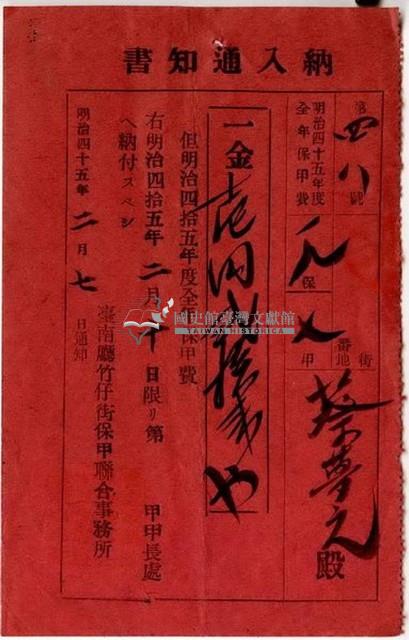 納入通知書
第四八號
街
番地
蔡夢元殿
明治四十五年度
全年保甲費
保
甲
一金壱円
也
但明治四拾五年度全年保甲費
右明治四拾五年二月十日限リ第 甲甲長處
ヘ納付スベシ
明治四十五年二月七日通知
臺南廳竹仔街保甲聯合事務所
國史館臺灣文獻館
TAIWAN HISTORICA